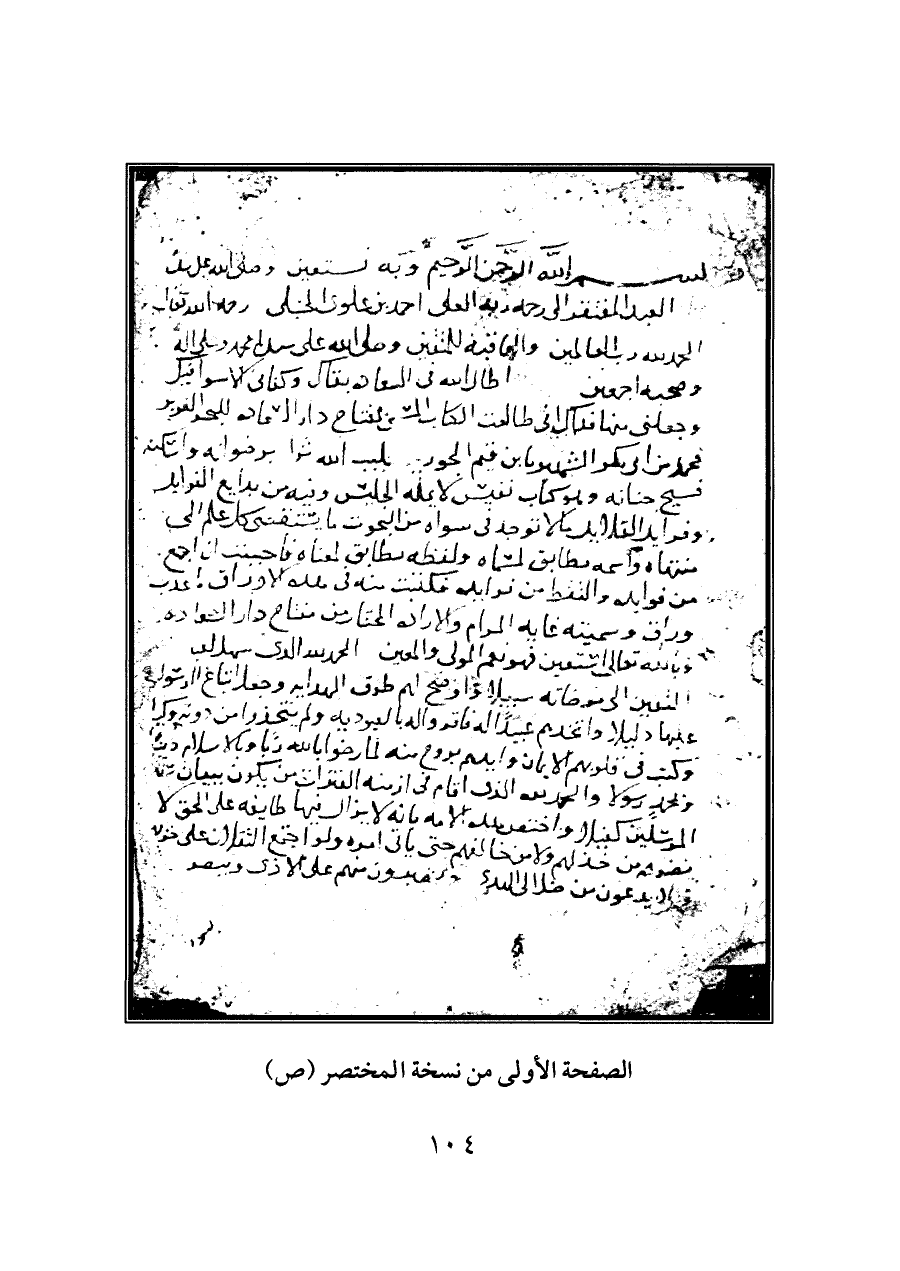 بسم الله الرحمن الرحيم وبه نستعين وصلى الله على
العبد المفتقر الى رحمه ربه العلى احمد بن علوى الحنبلى رحمه الله تعالى
الحمد لله رب العالمين والعاقبة للمتقين وصلى الله على سيدنا محمد وعلى اله
وصحبه اجمعين اطال الله فى السعاده بقاك وكفانى الاسوا فيك
وجعلنى فداك انى طالعت الكتاب بمفتاح دار السعاده
محمد بن ابى بكر الشهير بابن قيم الجوزيه طيب الله ثراه برضوانه واسكنه
فسيح جنانه وهو كتاب نفيس لا يمله الجليس وفيه من بدايع الفوايد
وفرايد القلايد ما لا توجد فى سواه من البحوث ما يستقصى كل علم الى
منتهاه واسمه مطابق لمسماه ولفظه مطابق لمعناه فاحببت ان اجمع
من فوايده والتقط من فرايده فكتبت منه فى هذه الاوراق ما عذب
وراق وسميته غايه المرام والاراده المختار من مفتاح دار السعاده
وبالله تعالى استعين فهو نعم المولى والمعين الحمد لله الذى سهل لعباده
المتقين الى مرضاته سبيلا واوضح لهم طرق الهدايه وجعل اتباع الرسول
عليها دليلا واتخذهم عبيدا له فاقروا له بالعبوديه ولم يتخذوا من دونه وكيلا
وكتب فى قلوبهم الايمان وايدهم بروح منه لما رضوا بالله ربا وبالاسلام دينا
وبمحمد رسولا والحمد لله الذى اقام فى ازمنه الفترات من يكون ببيان سنن
المرسلين كفيلا واختص هذه الامه بانه لا يزال فيها طايفه على الحق لا
يضرهم من خذلهم ولا من خالفهم حتى ياتى امره ولو اجتمع الثقلان على حربهم
قبيلا يدعون من ضل الى الهدى ويصبرون منهم على الاذى ويبصرون
الصفحة الأولى من نسخة المختصر (ص)
١٠٤